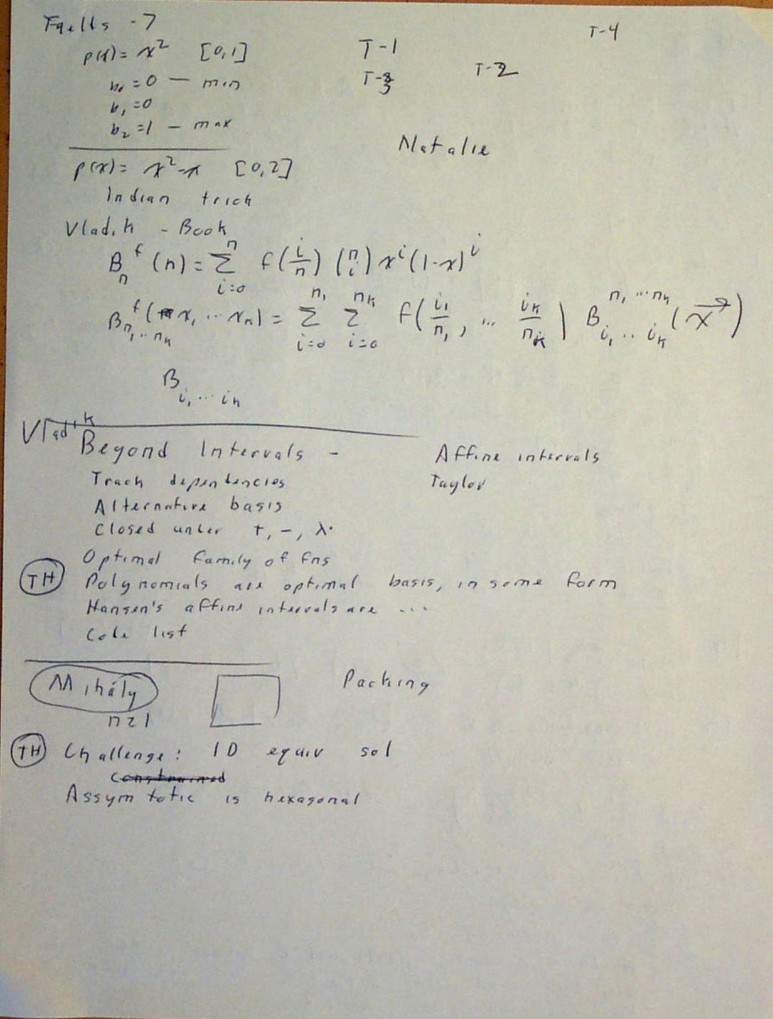 T-4
p(x) = x² [0,1] T-1
b₀=0 — min T-3 T-2
b₁=0
b₂=1 — max
Natalie
p(x) = x²-x [0,2]
Indian trick
Vladik - Book
B_n^f (n) = Σ_{i=0}^{n} f(i/n) (n i) x^i (1-x)^i
B^f_{n₁...n_k} (x₁ ... x_n) = Σ_{i=0}^{n₁} Σ_{i=0}^{n_k} f(i₁/n₁, ... i_k/n_k) B^{n₁...n_k}_{i₁...i_k} (x⃗)
B_{i₁...i_n}
Vladik
Beyond Intervals - Affine intervals
Track dependencies Taylor
Alternative basis
Closed under +, -, λ·
Optimal family of fns
TH Polynomials are optimal basis, in some form
Hansen's affine intervals are ...
Code list
Mihály Packing
n≥1
TH Challenge: 1D equiv sol
Constrained
Assymtotic is hexagonal